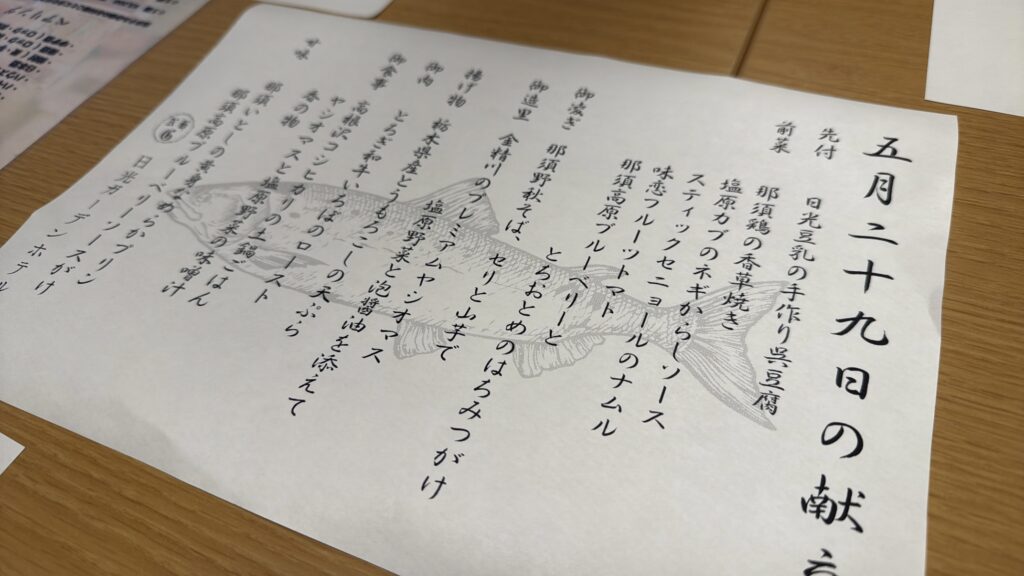 五月二十九日の献立
先付　日光豆乳の手作り呉豆腐
前菜　那須鶏の香草焼き
塩原カブのネギからしソース
スティックセニョールのナムル
味恋フルーツトマト
那須高原ブルーベリーと
とちおとめのはちみつがけ
御凌ぎ　那須野秋そば、セリと山芋で
御造里　金精川のプレミアムヤシオマス
塩原野菜と泡醤油を添えて
揚げ物　栃木県産とうもろこしの天ぷら
御肉　とちぎ和牛いちぼのロースト
御食事　高根沢コシヒカリの土鍋ごはん
ヤシオマスと塩原野菜の味噌汁
香の物
甘味　那須
那須高原ブルーベリーソースがけ
日光ガーデンホテル